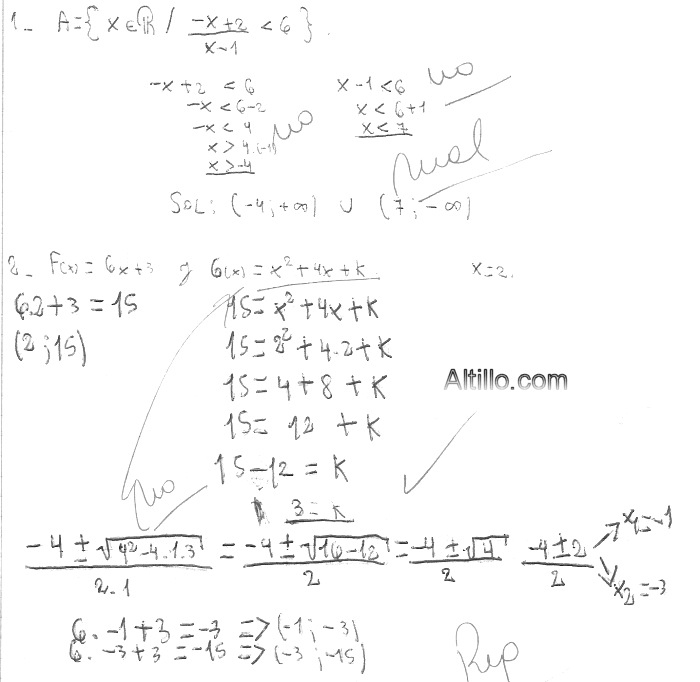 1_ A={ x∈ℝ / (-x+2)/(x-1) < 6 }.
-x+2 < 6
-x < 6-2
-x < 4
x > 4.(-1)
x > -4
no
x-1 < 6
x < 6+1
x < 7
no
mal
SOL: (-4;+∞) ∪ (7;-∞)
2_ F(x) = 6x+3 y G(x) = x²+4x+k. x=2.
6.2+3 = 15
(2;15)
15= x²+4x+k
15= 2²+4.2+k
15= 4+8+k
15= 12 +k
15-12 = k
3 = k
no
Altillo.com
(-4 ± √(4²-4.1.3))/(2.1) = (-4 ± √(16-12))/2 = (-4 ± √4)/2 (-4±2)/2
x₁=-1
x₂=-3
6. -1+3 = -3 => (-1;-3)
6. -3+3 = -15 => (-3;-15)
Rep